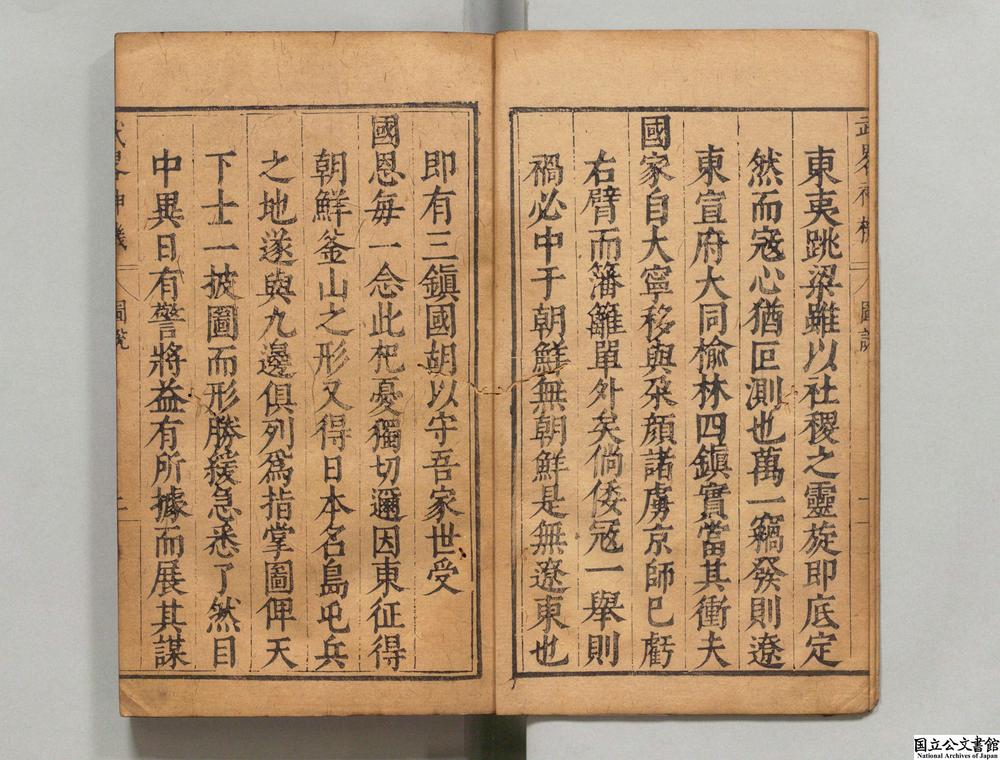 東夷跳梁雖以社稷之靈旋即底定
然而寇心猶叵測也萬一竊發則遼
東宣府大同榆林四鎮實當其衝夫
國家自大寧移與朶顏諸虜京師已虧
右臂而籓籬單外矣倘倭寇一舉則
禍必中于朝鮮無朝鮮是無遼東也
圖說
二
即有三鎮國胡以守吾家世受
國恩每一念此杞憂獨切邇因東征得
朝鮮釜山之形又得日本名島屯兵
之地遂與九邊俱列為指掌圖俾天
下士一披圖而形勝緩急悉了然目
中異日有警將益有所據而展其謀
神機
圖說
二
国立公文書館
National Archives of Japan